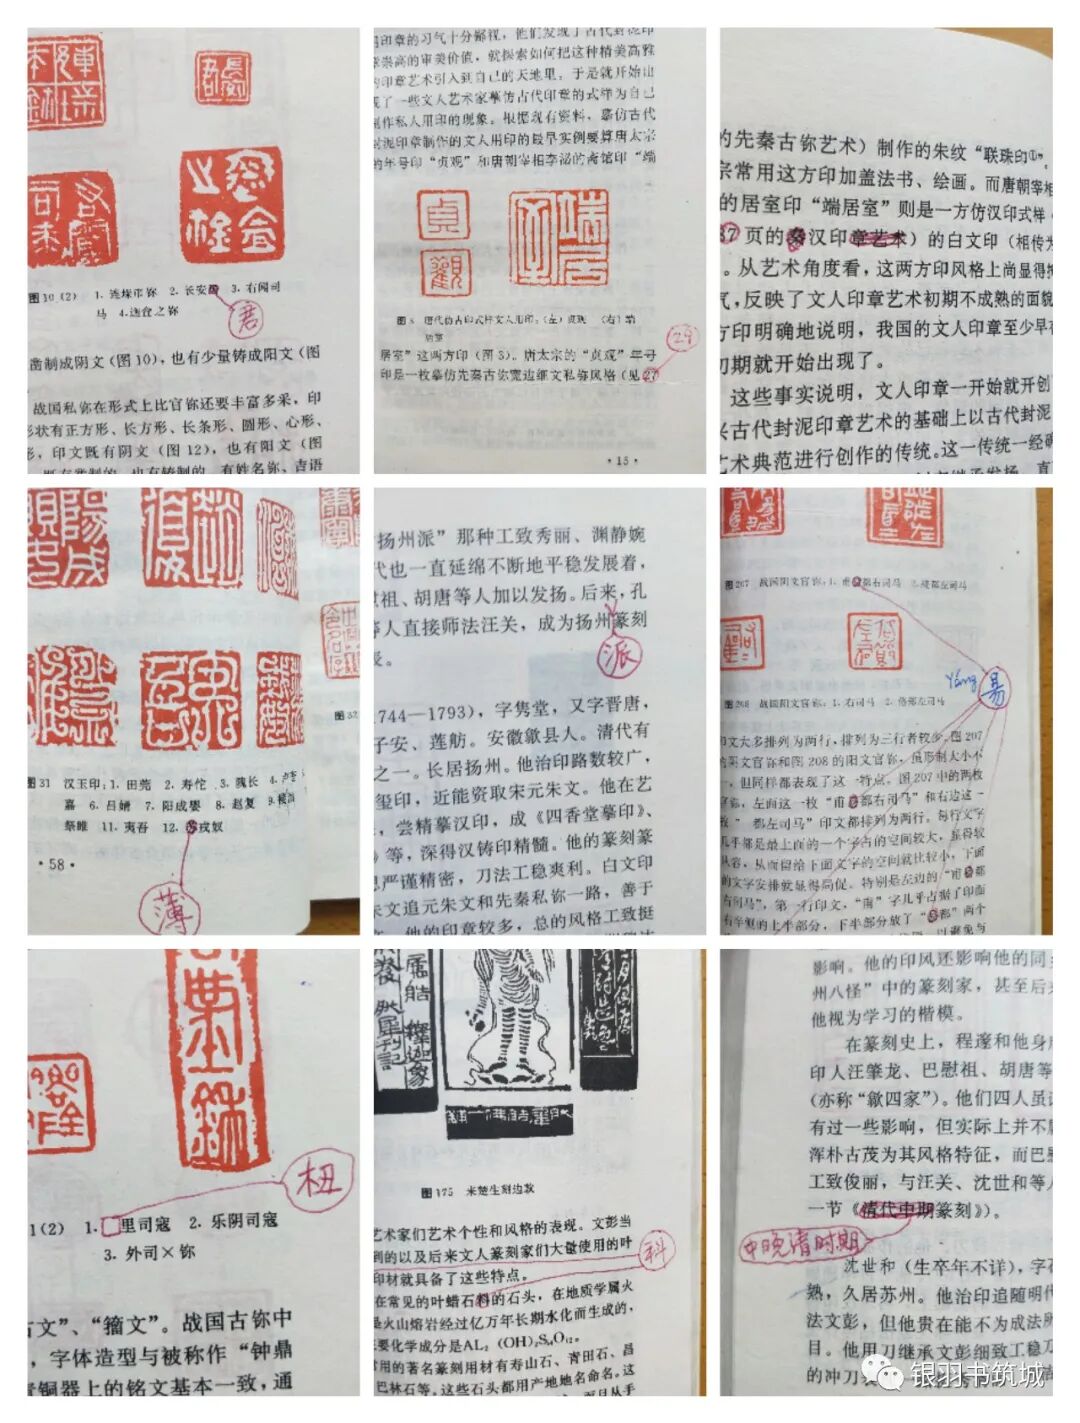 图10(2) 1. 连垛市鉨 2. 长安 3. 右闻司
马 4. 逸食之鉨
君
凿制成阴文(图10),也有少量铸成阳文(图
战国私鉨在形式上比官鉨还要丰富多采,印
形状有正方形、长方形、长条形、圆形、心形、
形,印文既有阴文(图12),也有阳文(图
印章的习气十分鄙视,他们发现了古代封泥印
崇高的审美价值,就探索如何把这种精美高雅
印章艺术引入到自己的天地里。于是就开始出
了一些文人艺术家摹仿古代印章的式样为自己
制作私人用印的现象。根据现有资料,摹仿古代
封泥印章制作的文人用印的最早实例要算唐太宗
的年号印“贞观”和唐朝宰相李泌的斋馆印“端
貞觀
端居室
图3 唐代仿古印式样文人用印:(左)贞观 (右)端
居室
居室”这两方印(图3)。唐太宗的“贞观”年号
印是一枚摹仿先秦古鉨宽边细文私鉨风格(见27
29
·15·
的先秦古鉨艺术)制作的朱纹“联珠印①”,
宗常用这方印加盖法书、绘画。而唐朝宰相
的居室印“端居室”则是一方仿汉印式样
37页的秦汉印章艺术)的白文印(相传为
。从艺术角度看,这两方印风格上尚显得
气,反映了文人印章艺术初期不成熟的面貌
方印明确地说明,我国的文人印章至少早在
初期就开始出现了。
这些事实说明,文人印章一开始就开创
兴古代封泥印章艺术的基础上以古代封泥
艺术典范进行创作的传统。这一传统一经确
图31 汉玉印:1. 田莞 2. 寿佗 3. 隗长 4.
嘉 6. 吕婧 7. 阳成婴 8. 赵复 9.
祭睢 11. 夷吾 12. 戎奴
·58·
薄
图32
扬州派”那种工致秀丽、渊静婉
代也一直延绵不断地平稳发展着,
慰祖、胡唐等人加以发扬。后来,孔
等人直接师法汪关,成为扬州篆刻
派
1744—1793),字隽堂,又字晋唐,
子安、莲舫。安徽歙县人。清代有
之一。长居扬州。他治印路数较广,
玺印,近能资取宋元朱文。他在艺
,尝精摹汉印,成《四香堂摹印》、
》等,深得汉铸印精髓。他的篆刻篆
严谨精密,刀法工稳爽利。白文印
朱文追元朱文和先秦私鉨一路,善于
他的印章较多,总的风格工致挺
图207 战国阴文官鉨:1. 甫都右司马 2. 都左司马
图208 战国阳文官鉨:1. 右司马 2. 佫都左司马
yáng
昜
印文大多排列为两行,排列为三行者较少。图207
的阴文官鉨和图208的阳文官鉨,虽形制大小不
,但同样都表现了这一特点。图207中的两枚
官鉨,左面这一枚“甫都右司马”和右边这一
都左司马”印文都排列为两行。每行文字
几乎都是最上面的一个字占的空间较大,显得较
从容,从而留给下面文字的空间就比较小,下面
的文字安排就显得局促。特别是左边的“甫都
右司马”,第一行印文,“甫”字几乎占据了印面
的上半部分,下半部分放了“都”两个
杻
1(2) 1. 里司寇 2. 乐阴司寇
3. 外司×鉨
古文”、“籀文”。战国古鉨中
,字体造型与被称作“钟鼎
青铜器上的铭文基本一致,通
图175 米楚生刻边款
艺术家们艺术个性和风格的表现。文彭当
到的以及后来文人篆刻家们大量使用的叶
印材就具备了这些特点。
科
在常见的叶蜡石料的石头,在地质学属火
是火山熔岩经过亿万年长期水化而生成的,
主要化学成分是AL₂(OH)₂S₄O₁₂。
常用的著名篆刻用材有寿山石、青田石、昌
巴林石等。这些石头都用产地地名命名。这
影响。他的印风还影响他的同
州八怪”中的篆刻家,甚至后来
他视为学习的楷模。
在篆刻史上,程邃和他身
印人汪肇龙、巴慰祖、胡唐等
(亦称“歙四家”)。他们四人虽
有过一些影响,但实际上并不
浑朴古茂为其风格特征,而巴
工致俊丽,与汪关、沈世和等人
一节《清代中期篆刻》)。
中晚清时期
沈世和(生卒年不详),字石
熟,久居苏州。他治印追随明代
法文彭,但他贵在能不为成法所
目。他用刀继承文彭细致工稳
的冲刀
银羽书筑城